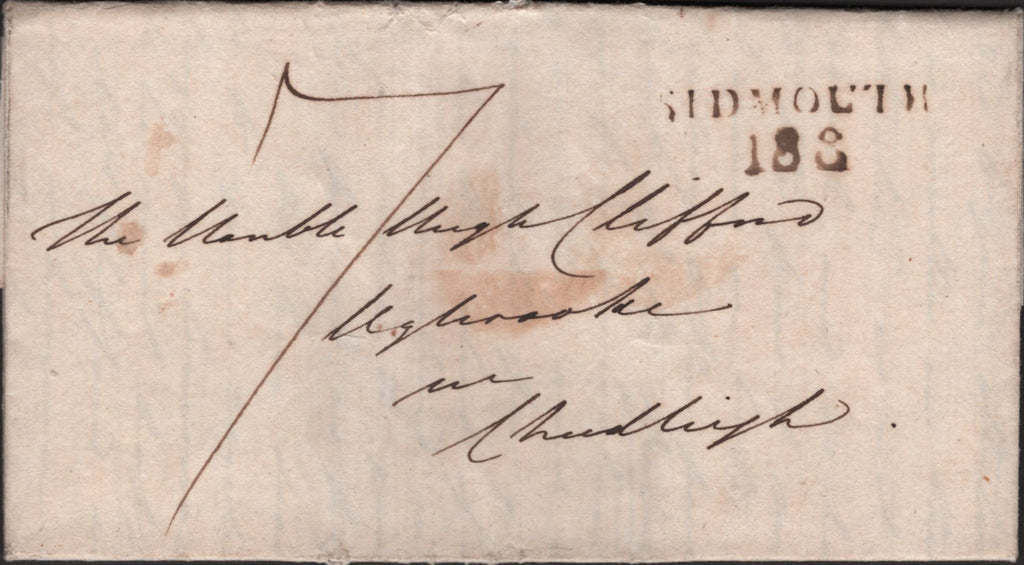 SIDMOUTH
188
7
The Honble Hugh Clifford
Ugbrooke
nr
Chudleigh.